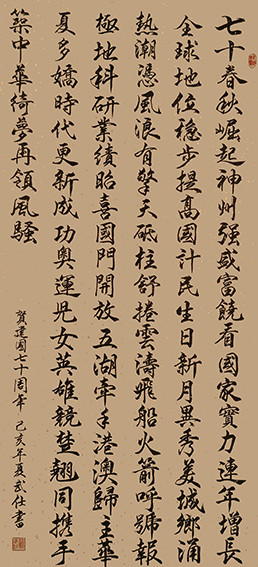 七十春秋崛起神州强盛富饒看國家實力連年增長
全球地位穩步提高國計民生日新月異秀美城鄉涌
熱潮憑風浪有擎天砥柱舒捲雲濤飛船火箭呼號報
極地科研業績眙喜國門開放五湖牽手港澳歸主華
夏多嬌時代更新成功奥運兒女英雄競楚翹同携手
築中華綺夢再領風騷
賀建國七十周年 己亥年夏 武仕書